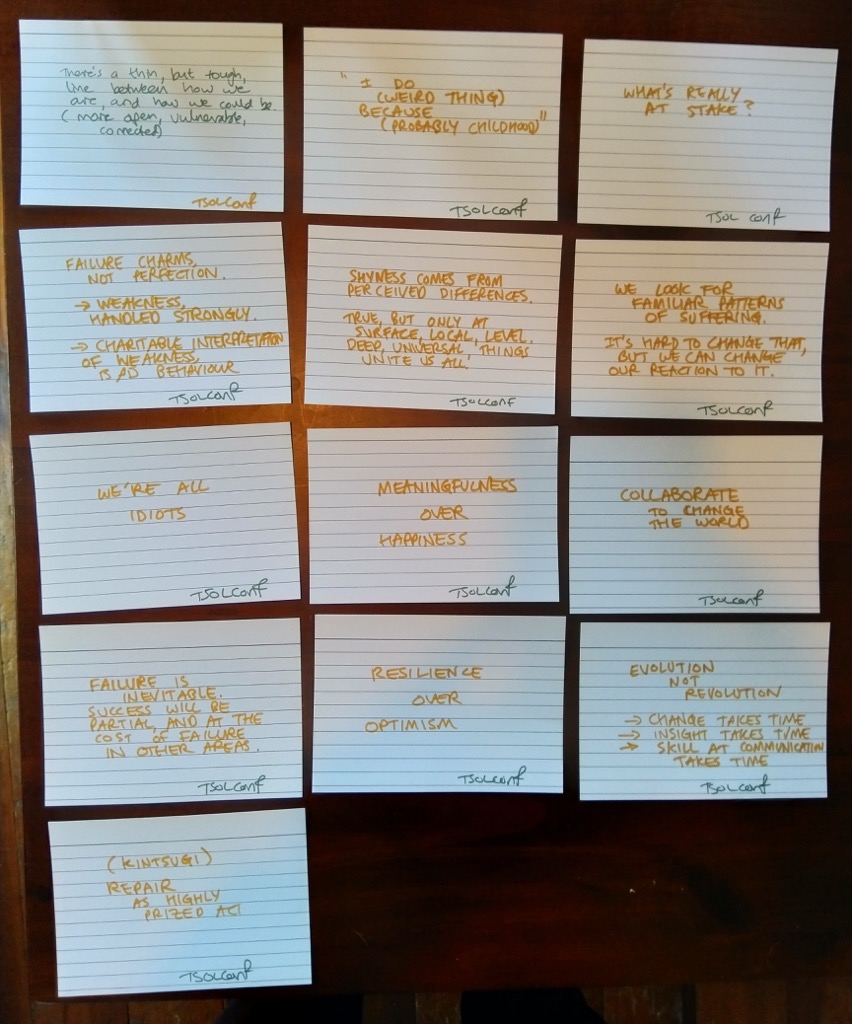 There's a thin, but tough,
line between how we
are, and how we could be
(more open, vulnerable,
connected)
TSOLconf
"I DO
(WEIRD THING)
BECAUSE
(PROBABLY CHILDHOOD)"
TSOLconf
WHAT'S REALLY
AT STAKE?
TSOL conf
FAILURE CHARMS,
NOT PERFECTION.
→ WEAKNESS,
HANDLED STRONGLY.
→ CHARITABLE INTERPRETATION
OF WEAKNESS,
BAD BEHAVIOUR
TSOLconf
SHYNESS COMES FROM
PERCEIVED DIFFERENCES.
TRUE, BUT ONLY AT
SURFACE, LOCAL, LEVEL.
DEEP, UNIVERSAL, THINGS
UNITE US ALL.
TSOLCONF
WE LOOK FOR
FAMILIAR PATTERNS
OF SUFFERING.
IT'S HARD TO CHANGE THAT,
BUT WE CAN CHANGE
OUR REACTION TO IT.
TSOLconf
WE'RE ALL
IDIOTS
TSOLconf
MEANINGFULNESS
OVER
HAPPINESS
TSOLconf
COLLABORATE
TO CHANGE
THE WORLD
TSOLconf
FAILURE IS
INEVITABLE.
SUCCESS WILL BE
PARTIAL, AND AT THE
COST OF FAILURE
IN OTHER AREAS.
TSOLconf
RESILIENCE
OVER
OPTIMISM
TSOLconf
EVOLUTION
NOT
REVOLUTION
→ CHANGE TAKES TIME
→ INSIGHT TAKES TIME
→ SKILL AT COMMUNICATION
TAKES TIME
TSOLconf
(KINTSUGI)
REPAIR
AS HIGHLY
PRIZED ACT
TSOLconf